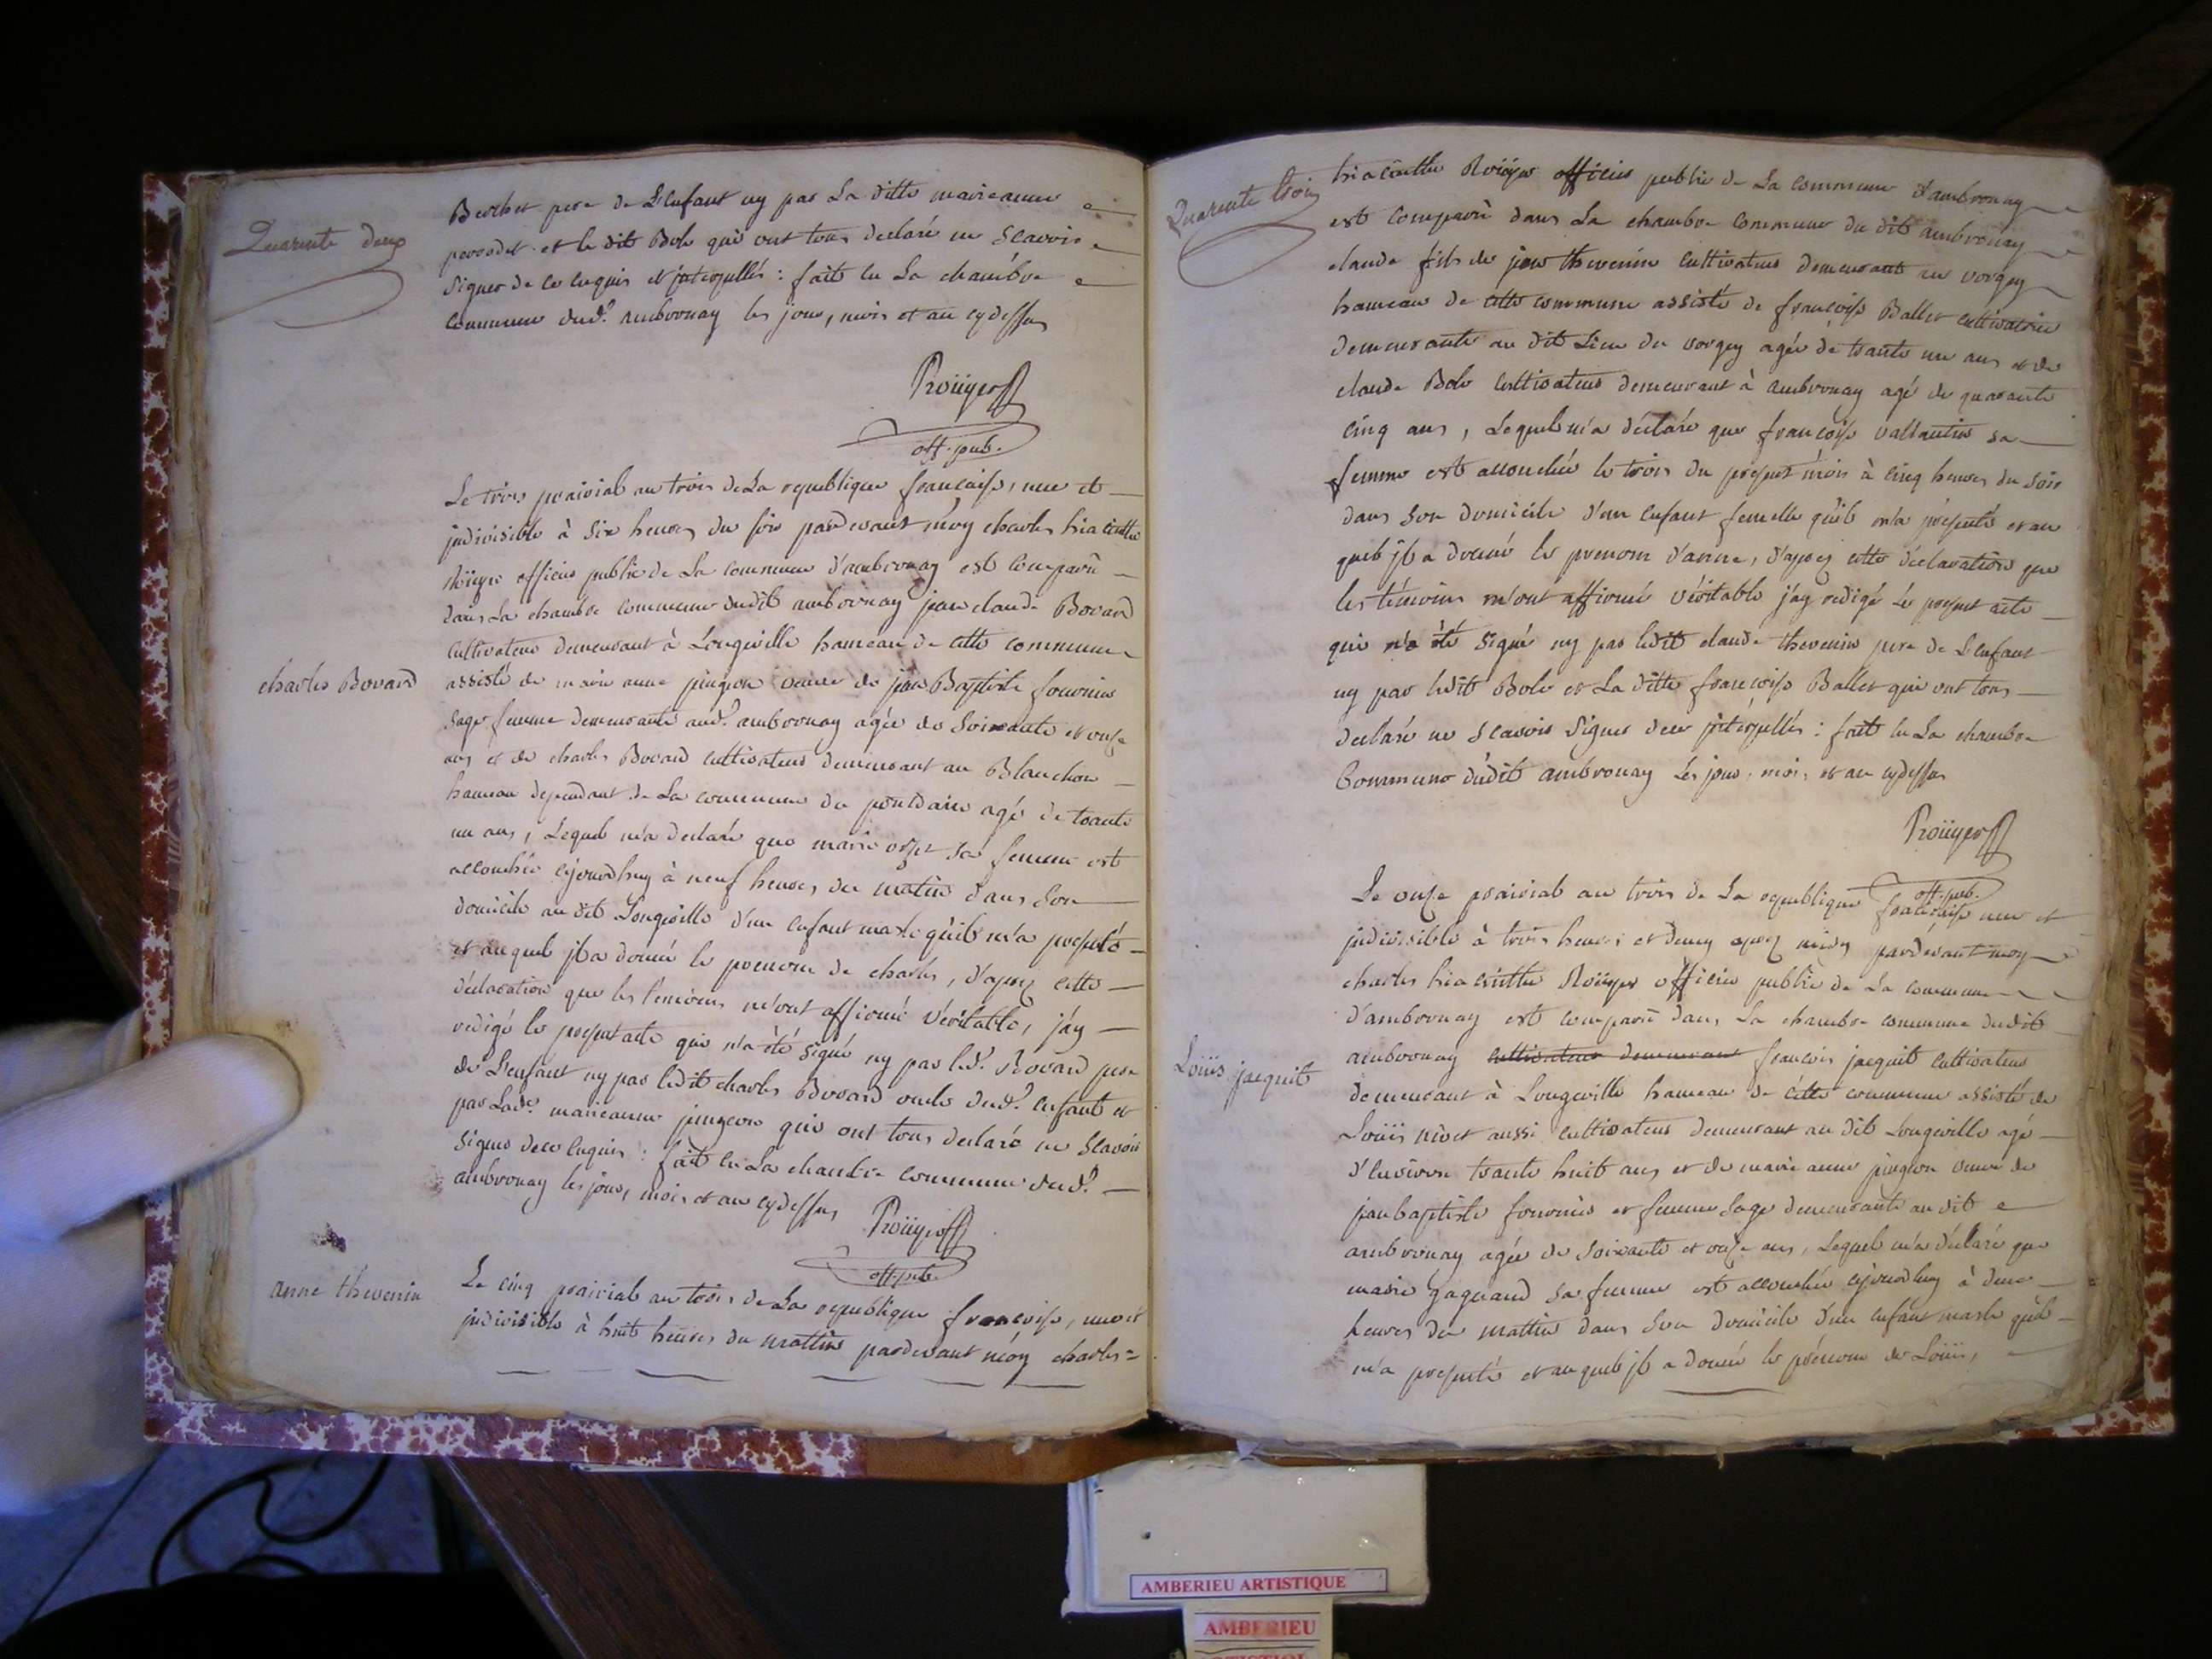 Quarente deux
Berthet pere de L'enfant ny par La ditte marieanne
perrodet et le dit Bolo qui ont tous declaré ne Scavoir
signer de ce enquis et jnterpellés : fait en La chambre
commune dud.t ambronay les jour, mois et an cydessus
Roüyer
off. pub.
Le trois prairial an trois de La republique francaise, une et
jndivisible à Six heures du soir pardevant moy charles hiacinthe
Roüyer officier public de La commune d'ambronay est Comparû
dans La chambre commune dudit ambronay jean claude Bovard
cultivateur demeurant à Longeville hameau de cette commune
charles Bovard
assisté de marie anne pingeon veuve de jean Baptiste fournier
sage femme demeurante aud.t ambronay agée de Soixante et onze
ans et de charles Bovard cultivateur demeurant au Blanchon
hameau dependant de La commune du pontdain agé de trante
un ans, Lequel m'a declaré que marie sa femme est
accouchée cejourdhuy à neuf heures du matin dans Son
domicile au dit Longeville d'un enfant masle qu'il m'a presenté
et auquel jl a donné le prenom de charles, d'aprez cette
déclaration que les temoins m'ont affirmé véritable, j'ay
redigé le present acte qui n'a été signé ny par led.t Bovard pere
de L'enfant ny par ledit charles Bovard oncle dud.t enfant et
par Lad.e marieanne pingeon qui ont tous declaré ne Scavoir
signer de ce enquis : fait en La chambre commune dud.t
ambronay les jour, mois et an cydessus
Roüyer
off. pub.
anne thevenin
Le cinq prairial an trois de La republique francoise, une et
jndivisible à huit heures du mattin pardevant moy charles =
Quarente trois
hiacinthe Roüyer officier public de La commune d'ambronay
est comparû dans La chambre commune du dit ambronay
claude fils de jean thevenin cultivateur demeurant au vorgey
hameau de cette commune assisté de francoise Ballet cultivatrice
demeurante au dit Lieu du vorgey agée de trante un ans et de
claude Bolo cultivateur demeurant à ambronay agé de quarante
cinq ans, Lequel m'a déclaré que francoise vallantin sa
femme est accouchée le trois du present mois à cinq heures du soir
dans son domicile d'un enfant femelle qu'il m'a presenté et au
quel jl a donné le prenom d'anne, d'aprez cette déclaration que
les témoins m'ont affirmé véritable j'ay redigé le present acte
qui n'a été signé ny par ledit claude thevenin pere de L'enfant
ny par ledit Bolo et La ditte francoise Ballet qui ont tous
declaré ne Scavoir Signer de ce jnterpellés : fait en La chambre
Commune dudit ambronay les jour, mois et an cydessus
Roüyer
off. pub.
Le onze prairial an trois de La republique francaise une et
jndivisible à trois heures et demy aprez midy pardevant moy
charles hiacinthe Roüyer officier public de La commune
d'ambronay est comparû dans La chambre commune dudit
ambronay cultivateur demeurant francois jacquit cultivateur
Loüis jacquit
demeurant à Longeville hameau de cette commune assisté de
Loüis nivet aussi cultivateur demeurant au dit Longeville agé
d'environ trante huit ans et de marie anne pingeon veuve de
jeanbaptiste fournier et femme sage demeurante au dit
ambronay agée de soixante et onze ans, Lequel m'a déclaré que
marie gagnand sa femme est accouchée cejourdhuy à deux
heures du mattin dans son domicile d'un enfant masle qu'il
m'a presenté et auquel jl a donné le prénom de Loüis,
AMBERIEU ARTISTIQUE
AMBERIEU
ARTISTIQUE